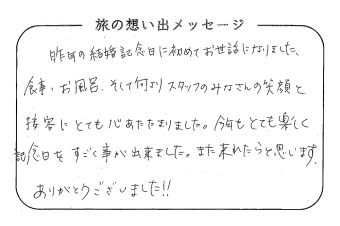 旅の想い出メッセージ
昨年の結婚記念日に初めてお世話になりました、
食事、お風呂、そして何よりスタッフのみなさんの笑顔と
接客にとても心あたたまりました。今年もとても楽しく
記念日をすごく事が出来ました。また来れたらと思います。
ありがとうございました!!